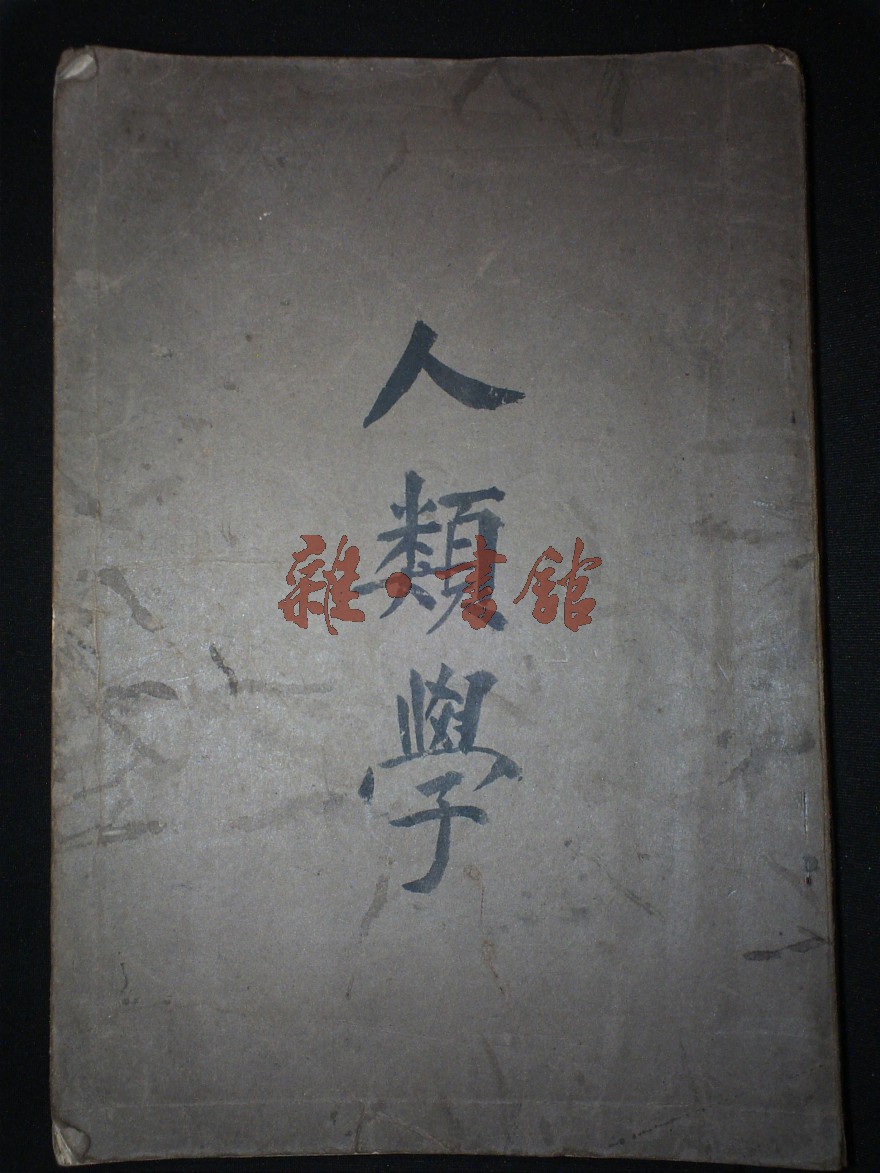 人類學
雜·書館